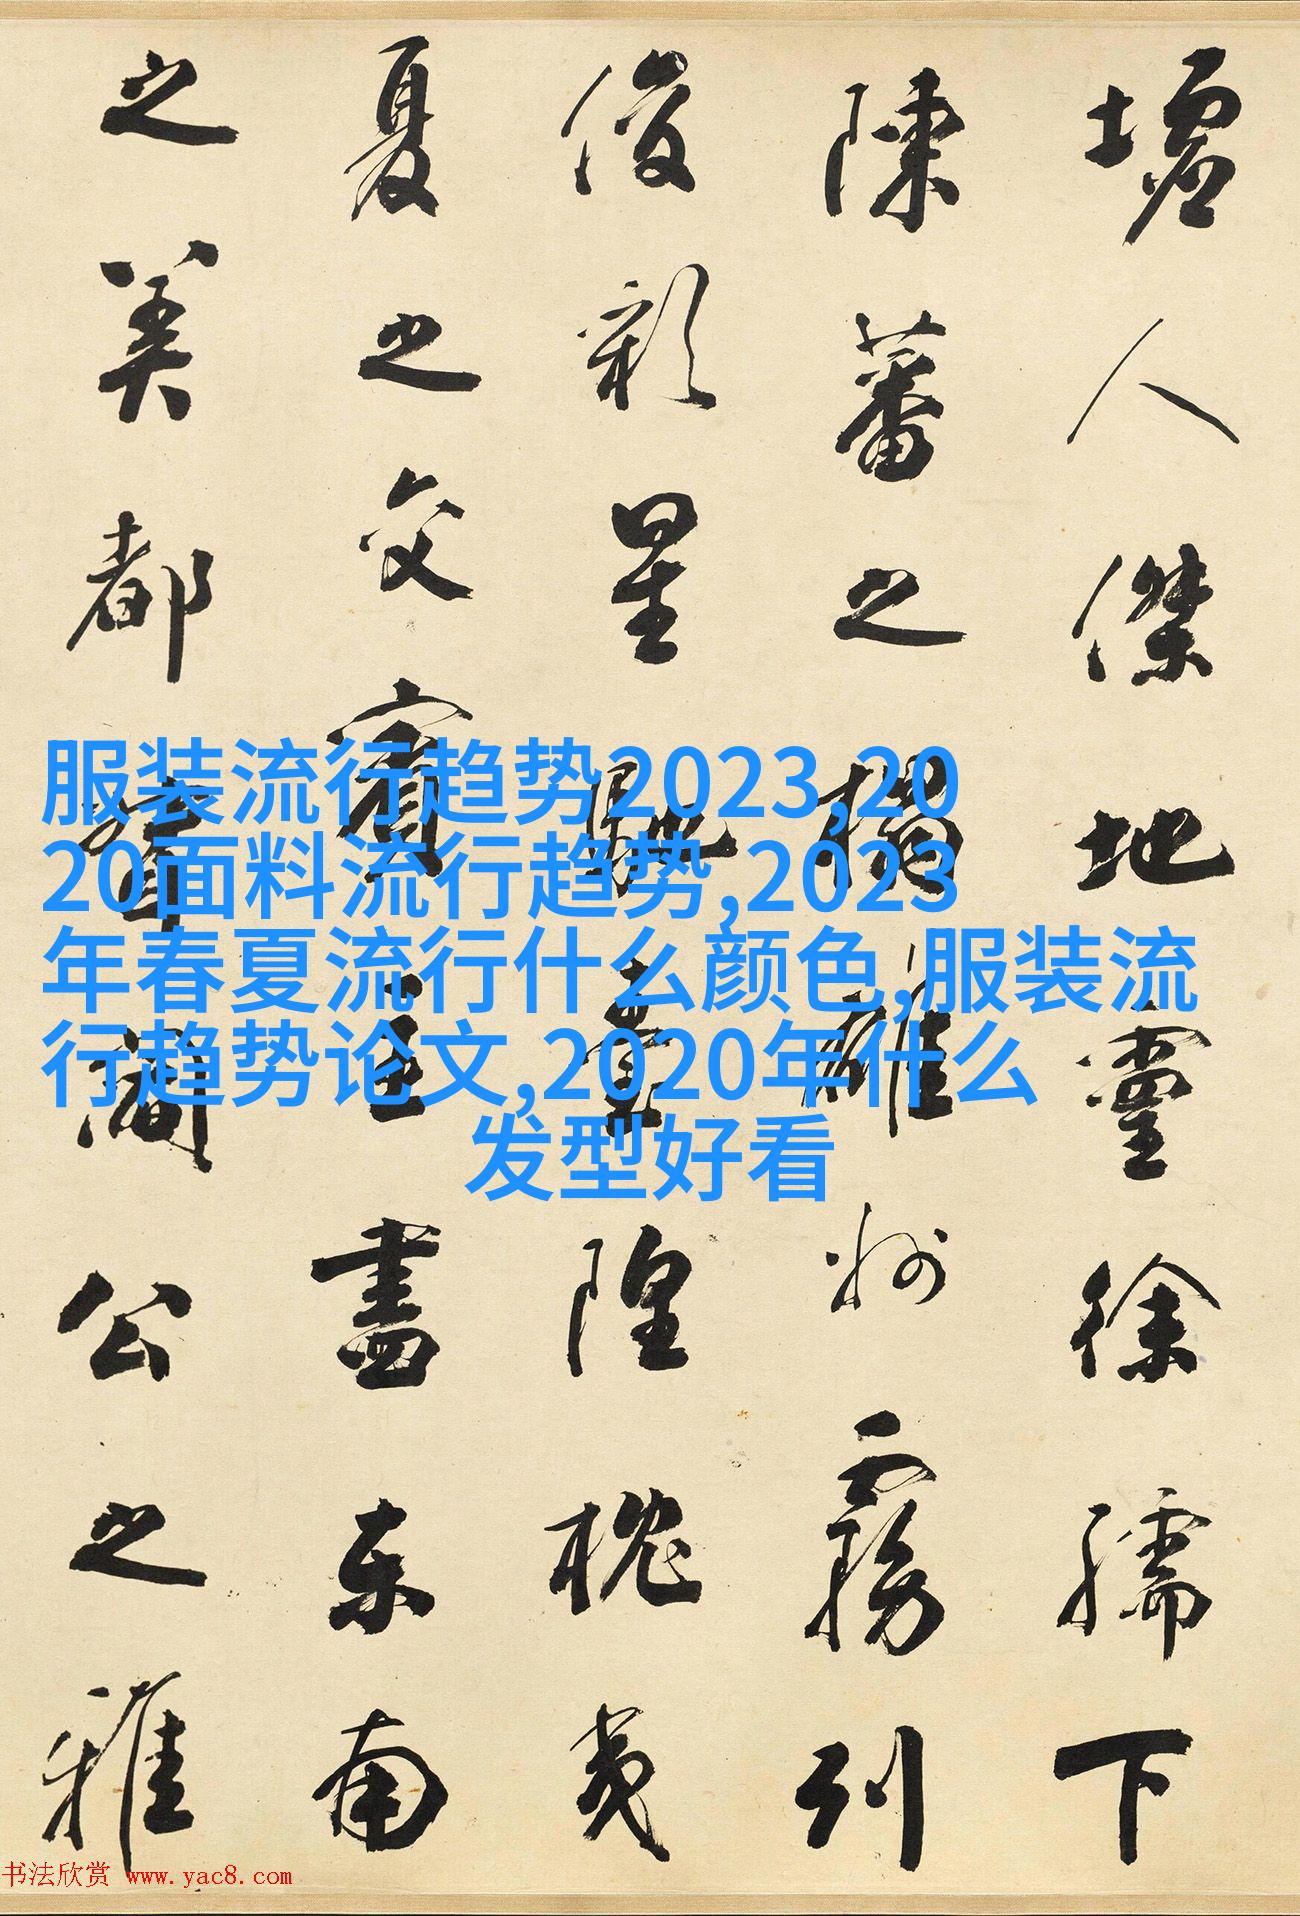 墟人傑地靈徐孺下
陳蕃之榻雄州霧列
俊彩星馳臺隍枕夷
夏之交賓主盡東南
之美都督閻公之雅
服装流行趋势2023,20
20面料流行趋势,2023
年春夏流行什么颜色,服装流
行趋势论文,2020年什么
发型好看
书法欣赏 www.yac8.com